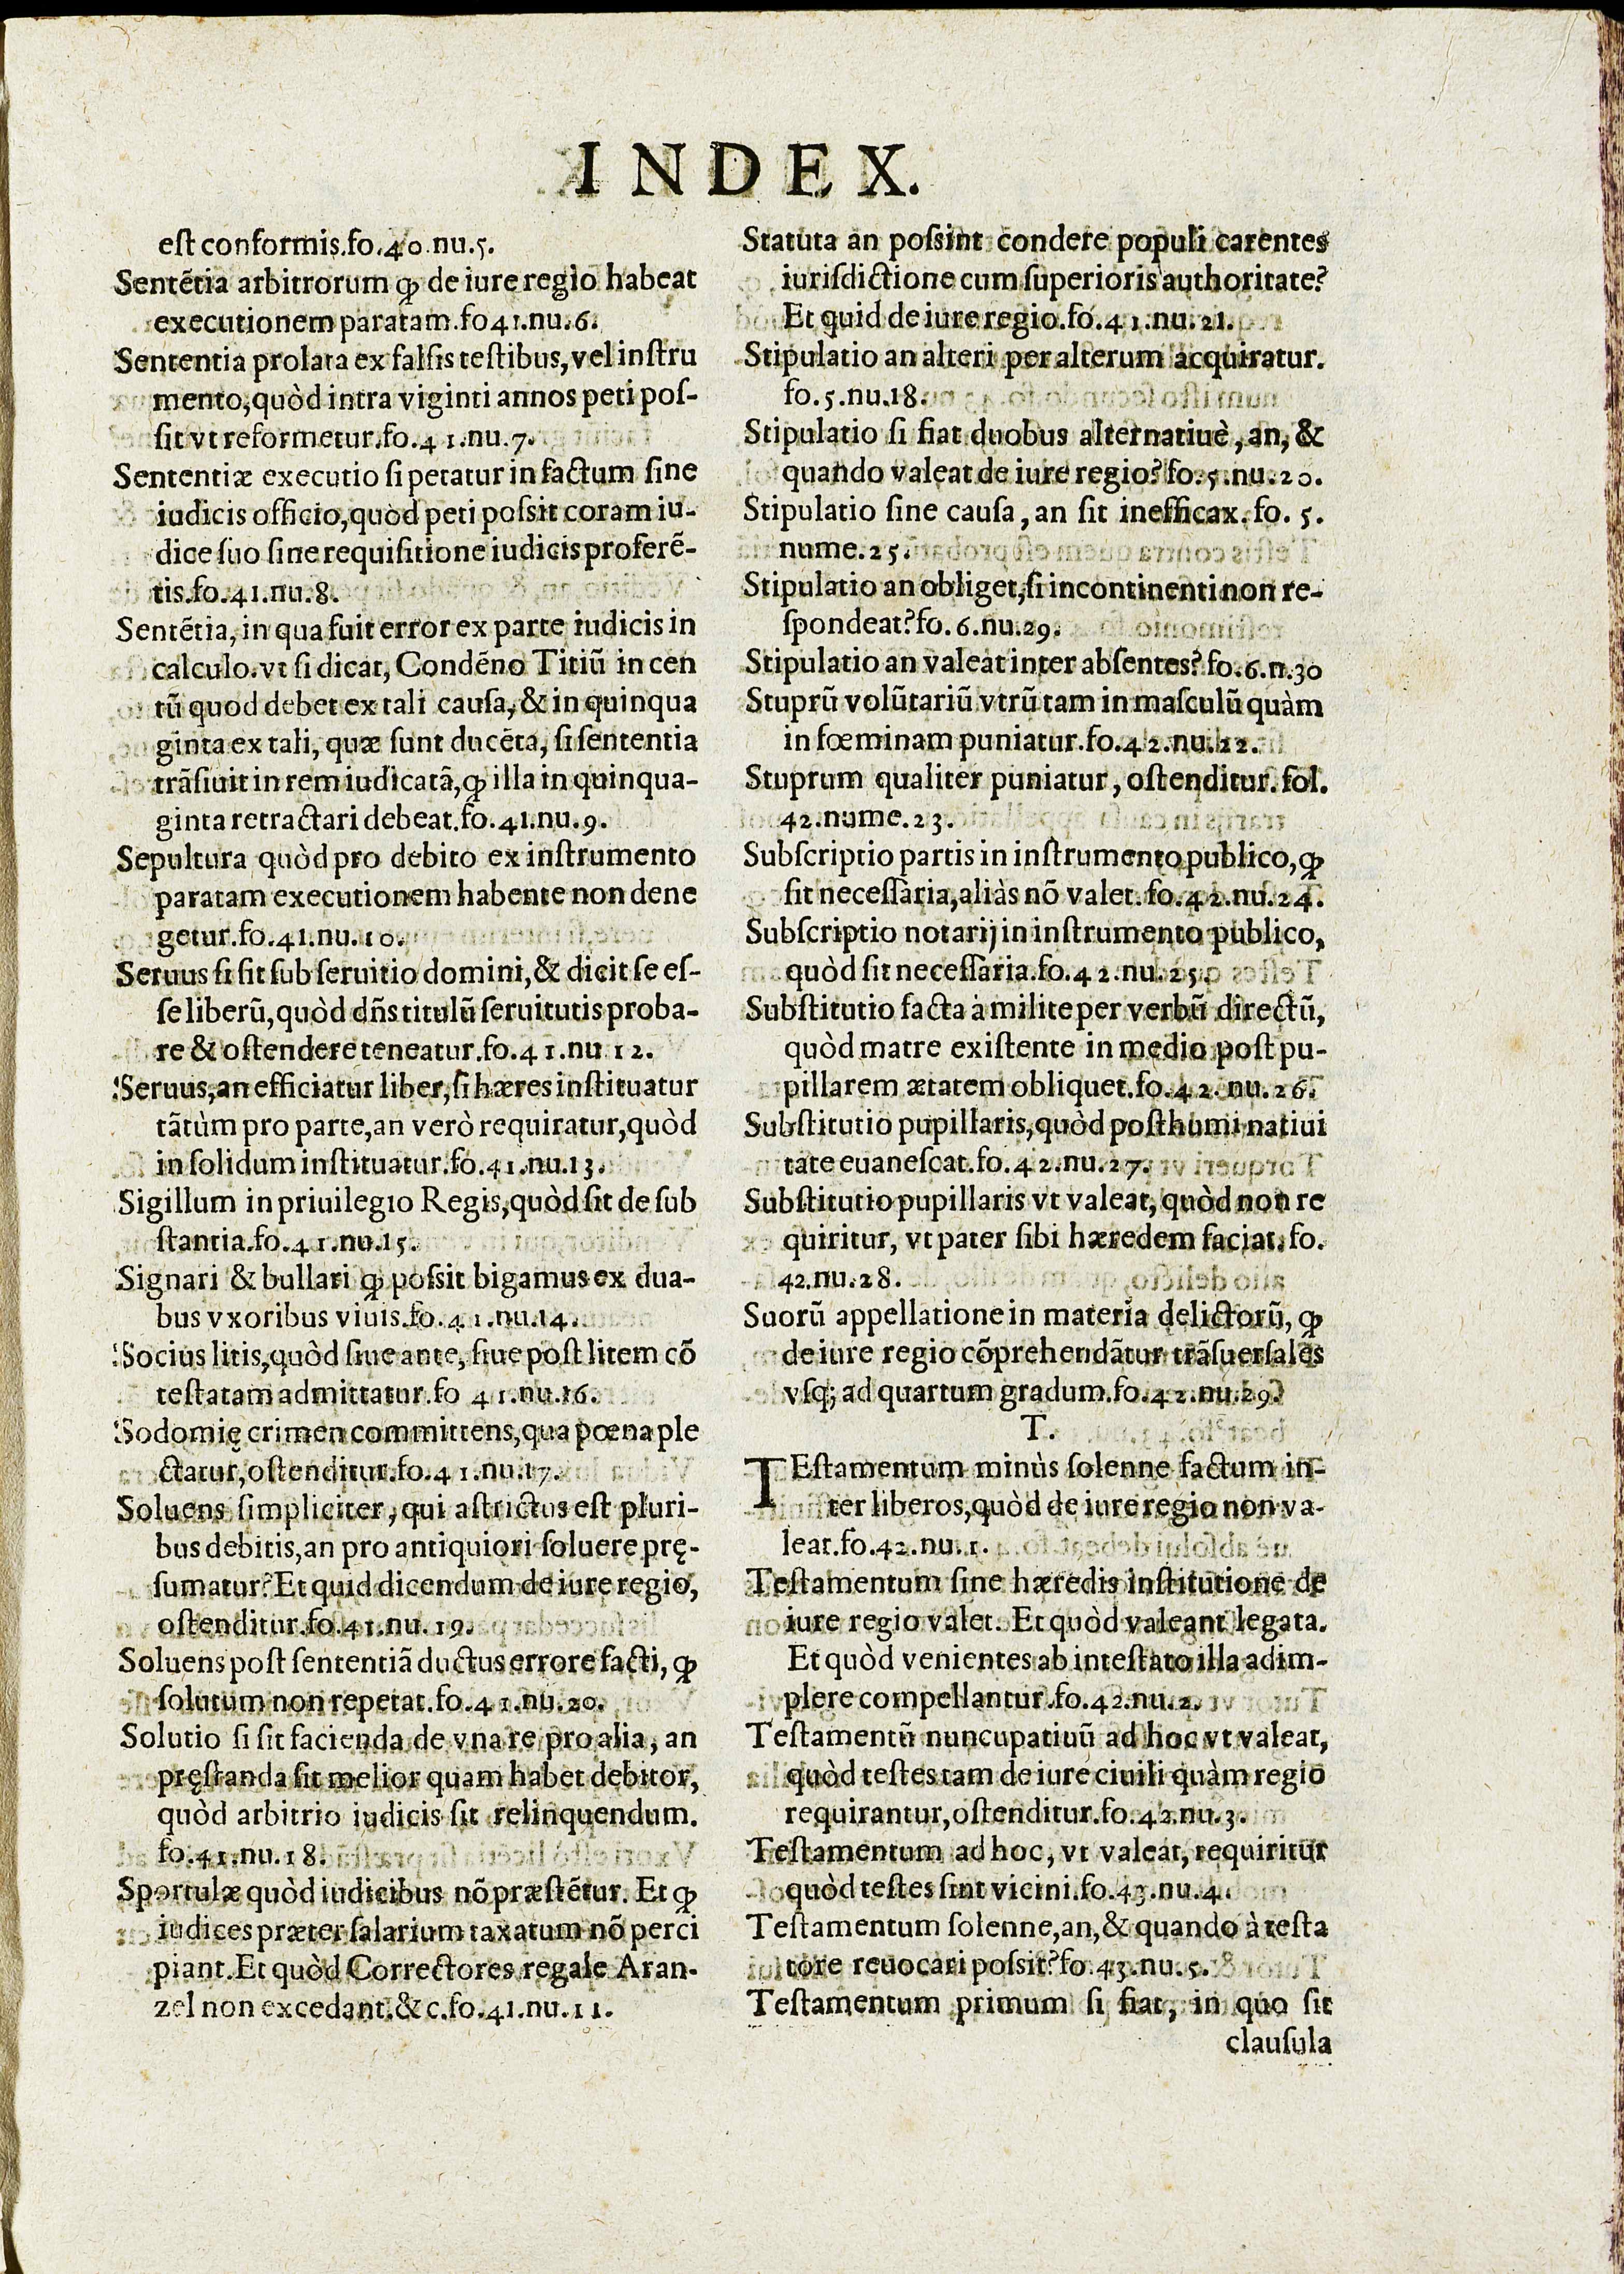 INDEX.
est conformis.fo.40.nu.5.
Sentẽtia arbitrorum ꝙ de iure regio habeat
executionem paratam.fo41.nu.6.
Sententia prolata ex falsis teſtibus, vel inſtru
mento, quòd intra viginti annos peti poſ-
ſit vt reformetur.fo.41.nu.7.
Sententiæ executio ſi petatur in factum ſine
iudicis officio, quòd peti poſsit coram iu-
dice ſuo ſine requiſitione iudicis proferẽ-
tis.fo.41.nu.8.
Sentẽtia, in qua fuit error ex parte iudicis in
calculo. vt ſi dicat, Condẽno Titiũ in cen
tũ quod debet ex tali cauſa, & in quinqua
ginta ex tali, quæ ſunt ducẽta, ſi ſententia
trãſiuit in rem iudicatã, ꝙ illa in quinqua-
ginta retractari debeat.fo.41.nu.9.
Sepultura quòd pro debito ex inſtrumento
paratam executionem habente non dene
getur.fo.41.nu.10.
Seruus ſi ſit ſub ſeruitio domini, & dicit ſe eſ-
ſe liberũ, quòd dñs titulũ ſeruitutis proba-
re & oſtendere teneatur.fo.41.nu 12.
Seruus, an efficiatur liber, ſi hæres inſtituatur
tãtùm pro parte, an verò requiratur, quòd
in ſolidum inſtituatur.fo.41.nu.13.
Sigillum in priuilegio Regis, quòd ſit de ſub
ſtantia.fo.41.nu.15.
Signari & bullari ꝙ poſsit bigamus ex dua-
bus vxoribus viuis.fo.41.nu.14.
Socius litis, quòd ſiue ante, ſiue poſt litem cõ
teſtatam admittatur.fo 41.nu.16.
Sodomię crimen committens, qua pœna ple
ctatur, oſtenditur.fo.41.nu.17.
Soluens ſimpliciter, qui aſtrictus eſt pluri-
bus debitis, an pro antiquiori ſoluere prę-
ſumatur? Et quid dicendum de iure regio,
oſtenditur.fo.41.nu.19.
Soluens poſt ſententiã ductus errore facti, ꝙ
ſolutum non repetat.fo.41.nu.20.
Solutio ſi ſit facienda de vna re pro alia, an
pręſtanda ſit melior quam habet debitor,
quòd arbitrio iudicis ſit relinquendum.
fo.41.nu.18.
Sportulæ quòd iudicibus nõ præſtẽtur. Et ꝙ
iudices præter ſalarium taxatum nõ perci
piant. Et quòd Correctores regale Aran-
zel non excedant.&c.fo.41.nu.11.
Statuta an poſsint condere populi carentes
iuriſdictione cum ſuperioris authoritate?
Et quid de iure regio.fo.41.nu.21.
Stipulatio an alteri per alterum acquiratur.
fo.5.nu.18.
Stipulatio ſi fiat duobus alternatiuè, an, &
quando valeat de iure regio? fo.5.nu.20.
Stipulatio ſine cauſa, an ſit inefficax. fo. 5.
nume.25.
Stipulatio an obliget, ſi incontinenti non re-
ſpondeat? fo.6.nu.29.
Stipulatio an valeat inter abſentes? fo.6.n.30
Stuprũ volũtariũ vtrũ tam in maſculũ quàm
in fœminam puniatur.fo.42.nu.22.
Stuprum qualiter puniatur, oſtenditur. fol.
42.nume.23.
Subſcriptio partis in inſtrumento publico, ꝙ
ſit neceſſaria, aliàs nõ valet. fo.42.nu.24.
Subſcriptio notarij in inſtrumento publico,
quòd ſit neceſſaria.fo.42.nu.25.
Subſtitutio facta à milite per verbũ directũ,
quòd matre exiſtente in medio poſt pu-
pillarem ætatem obliquet.fo.42.nu.26.
Subſtitutio pupillaris, quòd poſthumi natiui
tate euaneſcat.fo.42.nu.27.
Subſtitutio pupillaris vt valeat, quòd non re
quiritur, vt pater ſibi hæredem faciat. fo.
42.nu.28.
Suorũ appellatione in materia delictorũ, ꝙ
de iure regio cõprehendãtur trãſuerſales
vſq; ad quartum gradum.fo.42.nu.29.
T.
TEſtamentum minùs ſolenne factum in-
ter liberos, quòd de iure regio non va-
leat.fo.42.nu.1.
Teſtamentum ſine hæredis inſtitutione de
iure regio valet. Et quòd valeant legata.
Et quòd venientes ab inteſtato illa adim-
plere compellantur.fo.42.nu.2.
Teſtamentũ nuncupatiuũ ad hoc vt valeat,
quòd teſtes tam de iure ciuili quàm regio
requirantur, oſtenditur.fo.42.nu.3.
Teſtamentum ad hoc, vt valeat, requiritur
quòd teſtes ſint vicini.fo.43.nu.4.
Teſtamentum ſolenne, an, & quando à teſta
tore reuocari poſsit? fo.43.nu.5.
Teſtamentum primum ſi fiat, in quo ſit
clauſula